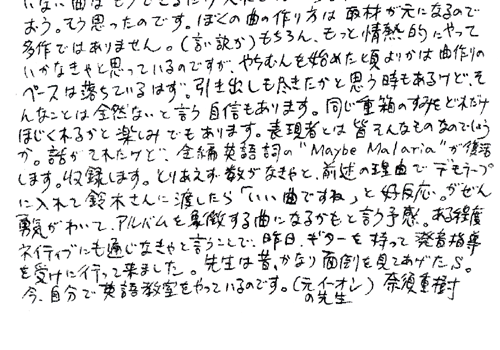 おう。そう思ったのです。ぼくの曲の作り方は取材が元になるので
多作ではありません。(言い訳か)もちろん、もっと情熱的にやって
いかなきゃと思っているのですが、やちむんを始めた頃よりかは曲作りの
ペースは落ちているはず。引き出しも尽きたかと思う時もあるけど、そ
んなことは全然ないと言う自信もあります。同じ重箱のすみをどれだけ
ほじくれるかと楽しみでもあります。表現者とは皆そんなものなのでしょう
か。話がそれたけど、全編英語詞の"Maybe Malaria"が復活
します。収録します。とりあえず数がなきゃと、前述の理由でデモテープ
に入れて鈴木さんに渡したら「いい曲ですね」と好反応。がぜん
勇気がわいて、アルバムを象徴する曲になるかもと言う予感。ある程度
ネイティブにも通じなきゃと言うことで、昨日、ギターを持って発音指導
を受けに行って来ました。先生は昔、かなり面倒を見てあげた、S。
今、自分で英語教室をやっているのです。(元イーオン 奈須重樹
の先生)